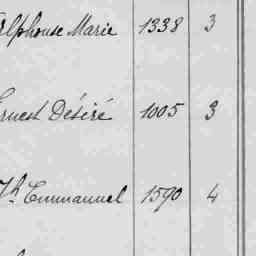 Alphonse Marie 1338 3
Ernest Désiré 1005 3
Th Emmanuel 1590 4